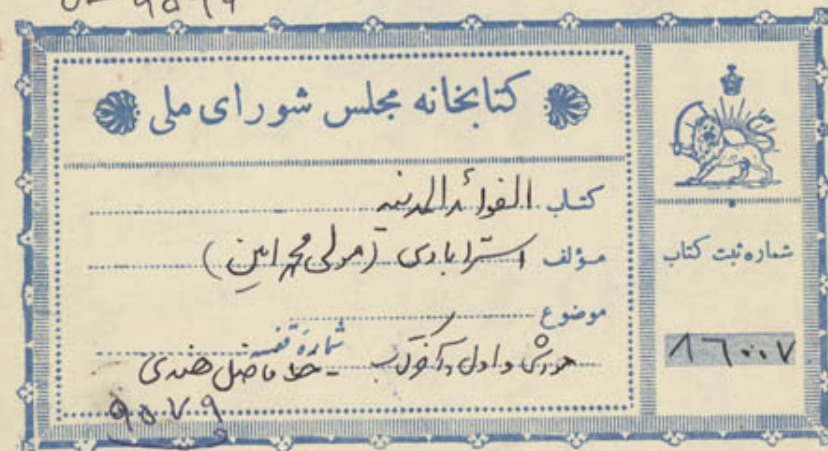 کتابخانه مجلس شورای ملی
کتاب الفوائد المدنیه
مؤلف استرابادی (مولی محمد امین)
موضوع
شماره قفسه
واول و آخر کتاب - خط فاضل هندی
۹۵۷۹
شماره ثبت کتاب
۸۶۰۰۷